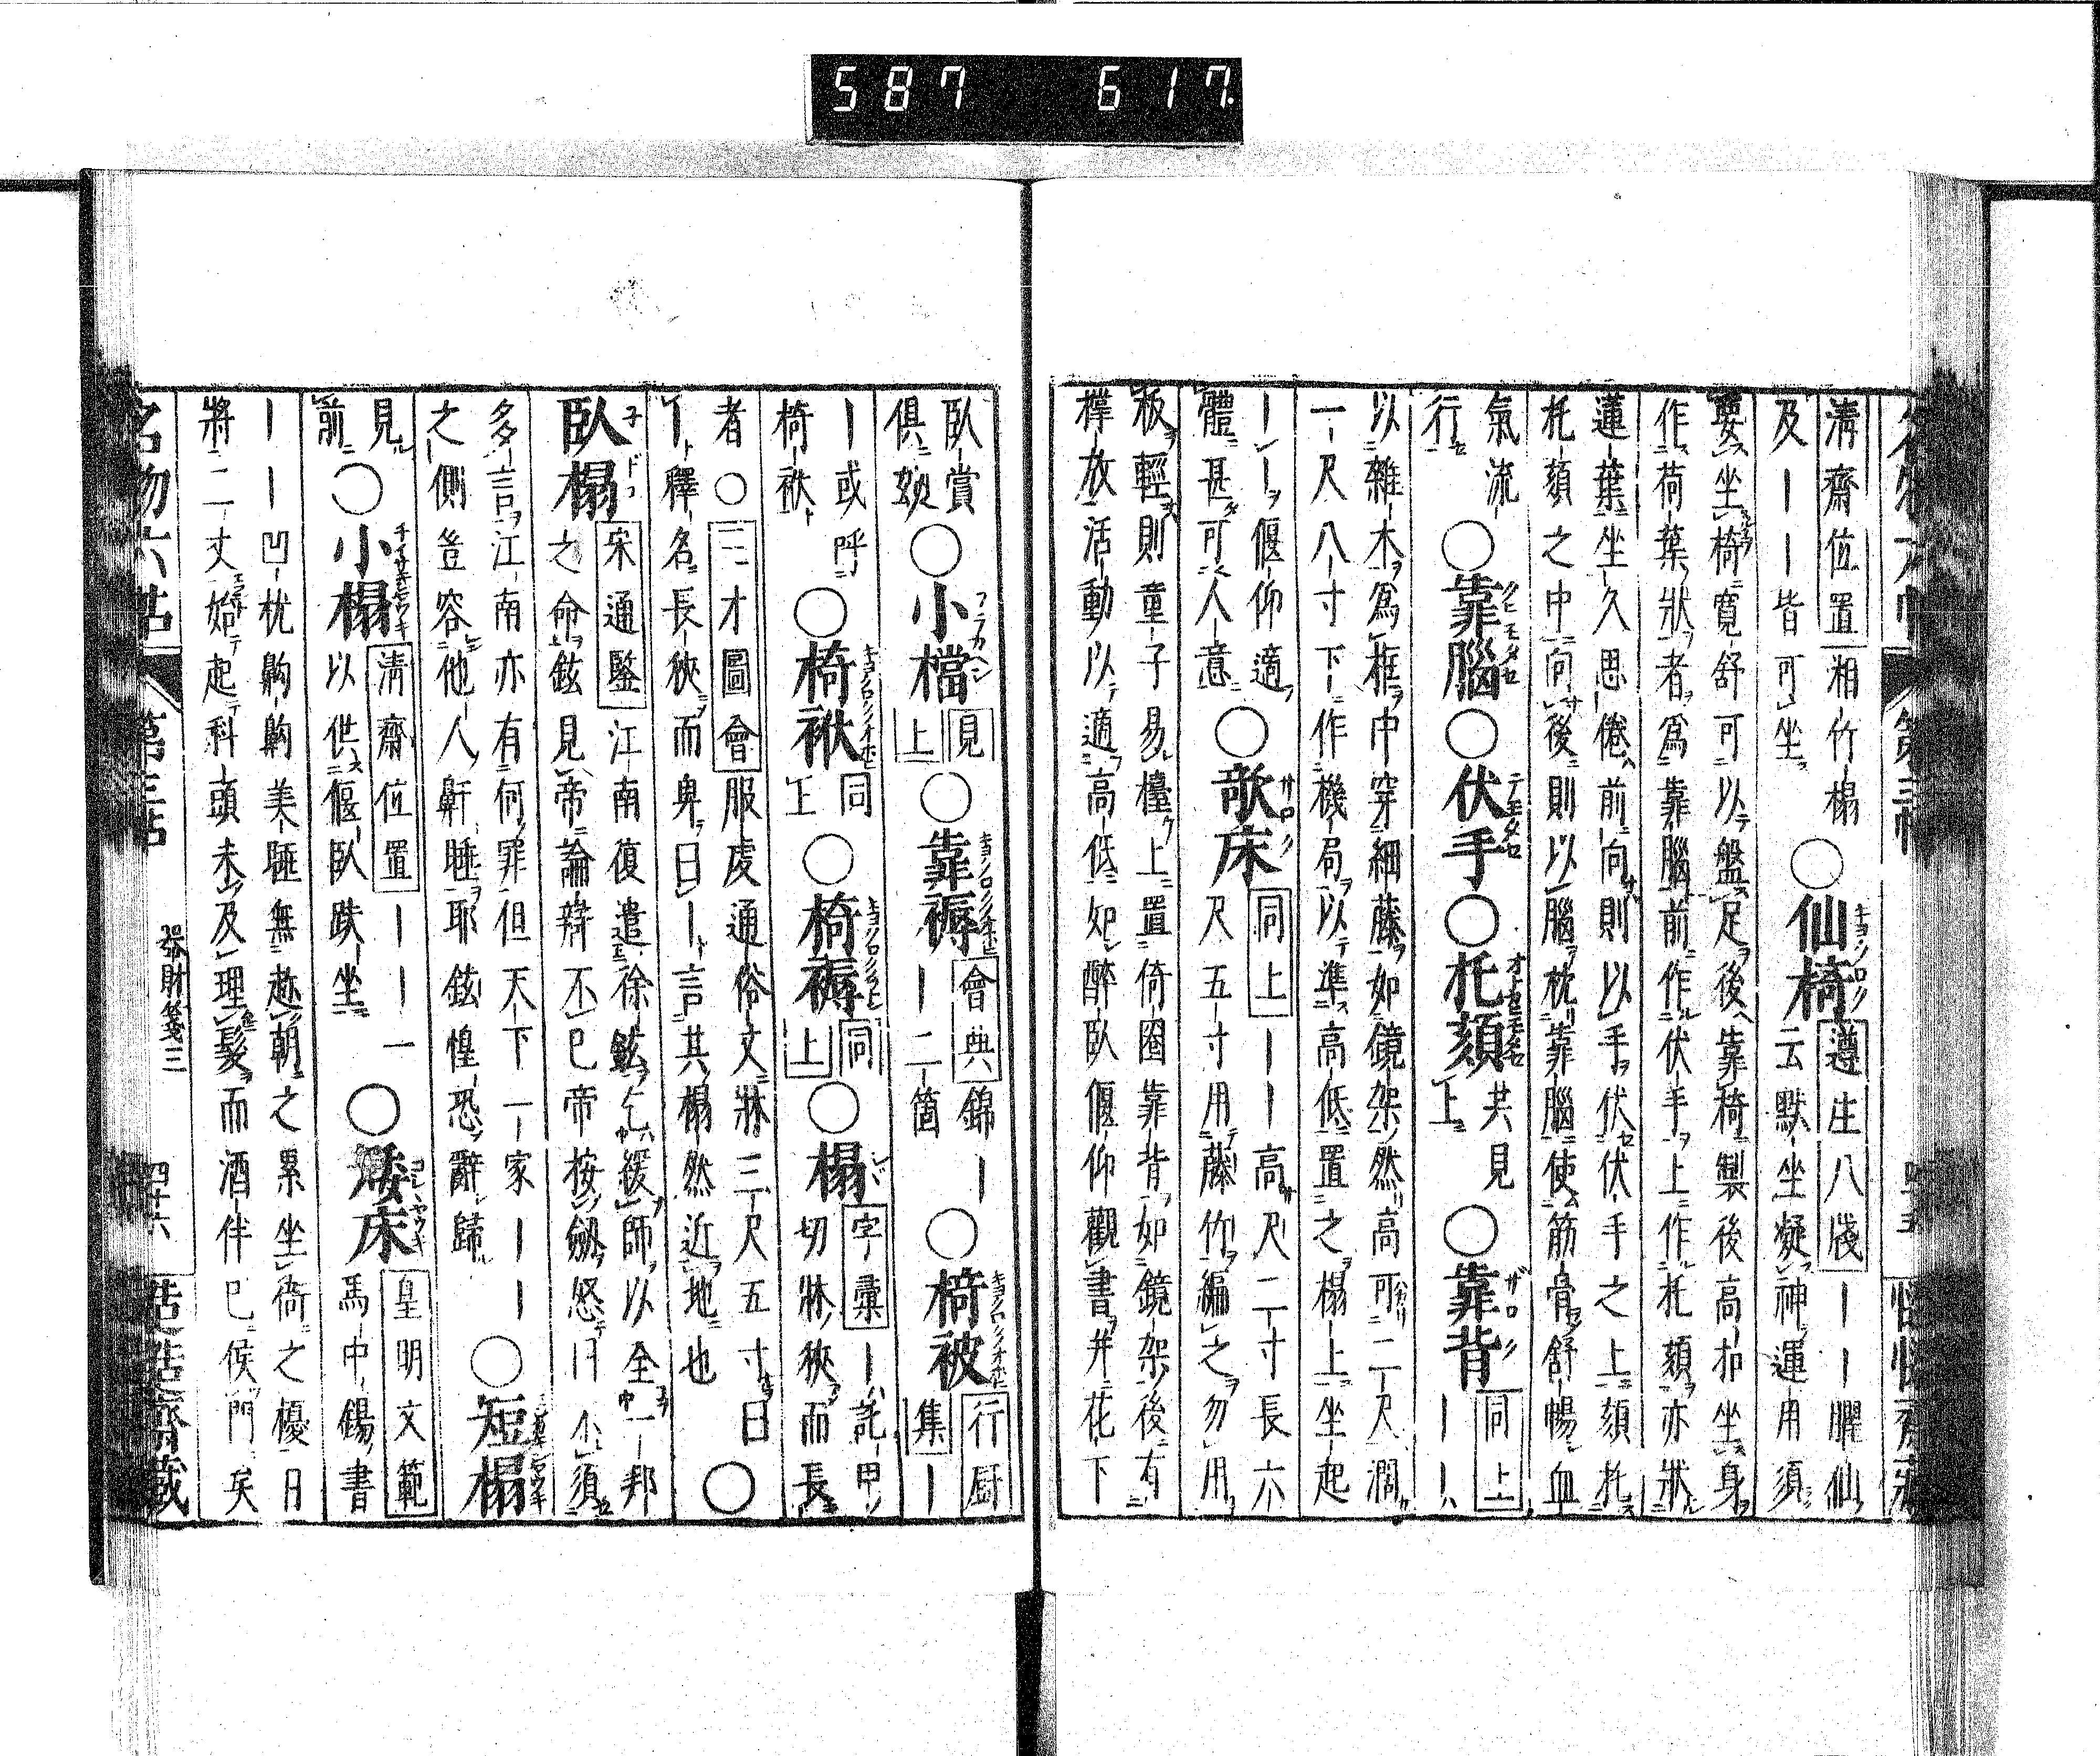 587 617.
清齋位置 湘竹榻
及｜｜皆可坐
○仙椅 遵生八牋 ｜｜臞仙
云默坐凝神運用須
要坐椅寬舒可以盤足後靠椅製後高扣坐身
作荷葉狀者爲靠腦前作伏手上作托頦亦狀
蓮葉坐久思倦前向則以手伏伏手之上頦托
托頦之中向後則以腦枕靠腦使筋骨舒暢血
氣流
行
○靠腦○伏手○托頦 共見
上
○靠背 同上 ｜｜
以雜木爲框中穿細藤如鏡架然高可二尺濶
一尺八寸下作機局以準高低置之榻上坐起
｜｜偃仰適
體甚可人意
○欹床 同上 ｜｜高尺二寸長六
尺五寸用藤竹編之勿用
板輕則童子易擡上置倚圈靠背如鏡架後有
撑放活動以適高低如醉臥偃仰觀書并花下
臥賞
俱妙
○小檔 見
上
○靠褥 會典 錦｜
｜二箇
○椅被 行厨
集 ｜
｜或呼
椅袱
○椅袱 同
上
○椅褥 同
上
○榻 字彙 ｜託甲
切牀狹而長
者○三才圖會 服虔通俗文牀三尺五寸曰
｜釋名長狹而卑曰｜言其榻然近地也
○
臥榻 宋通鑒 江南復遣徐鉉乞緩師以全一邦
之命鉉見帝論辯不已帝按劔怒曰不須
多言江南亦有何罪但天下一家｜｜
之側豈容他人鼾睡耶鉉惶恐辭歸
○短榻
見
前
○小榻 清齋位置 ｜｜一
以供偃臥趺坐
○矮床 皇明文範
馬中錫書
｜｜凹枕齁齁美睡無趂朝之累坐衙之擾日
將二丈始起科頭未及理髮而酒伴已候門矣
名物六帖 第三帖 器財箋三 四十六